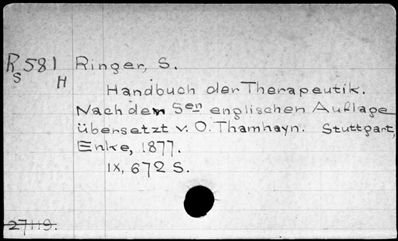 R581 Ringer, S.
S H
Handbuch der Therapeutik.
Nach der 5en englischen Auflage
übersetzt v. O. Thamhayn. Stuttgart,
Enke, 1877.
IX, 672 S.
27119.